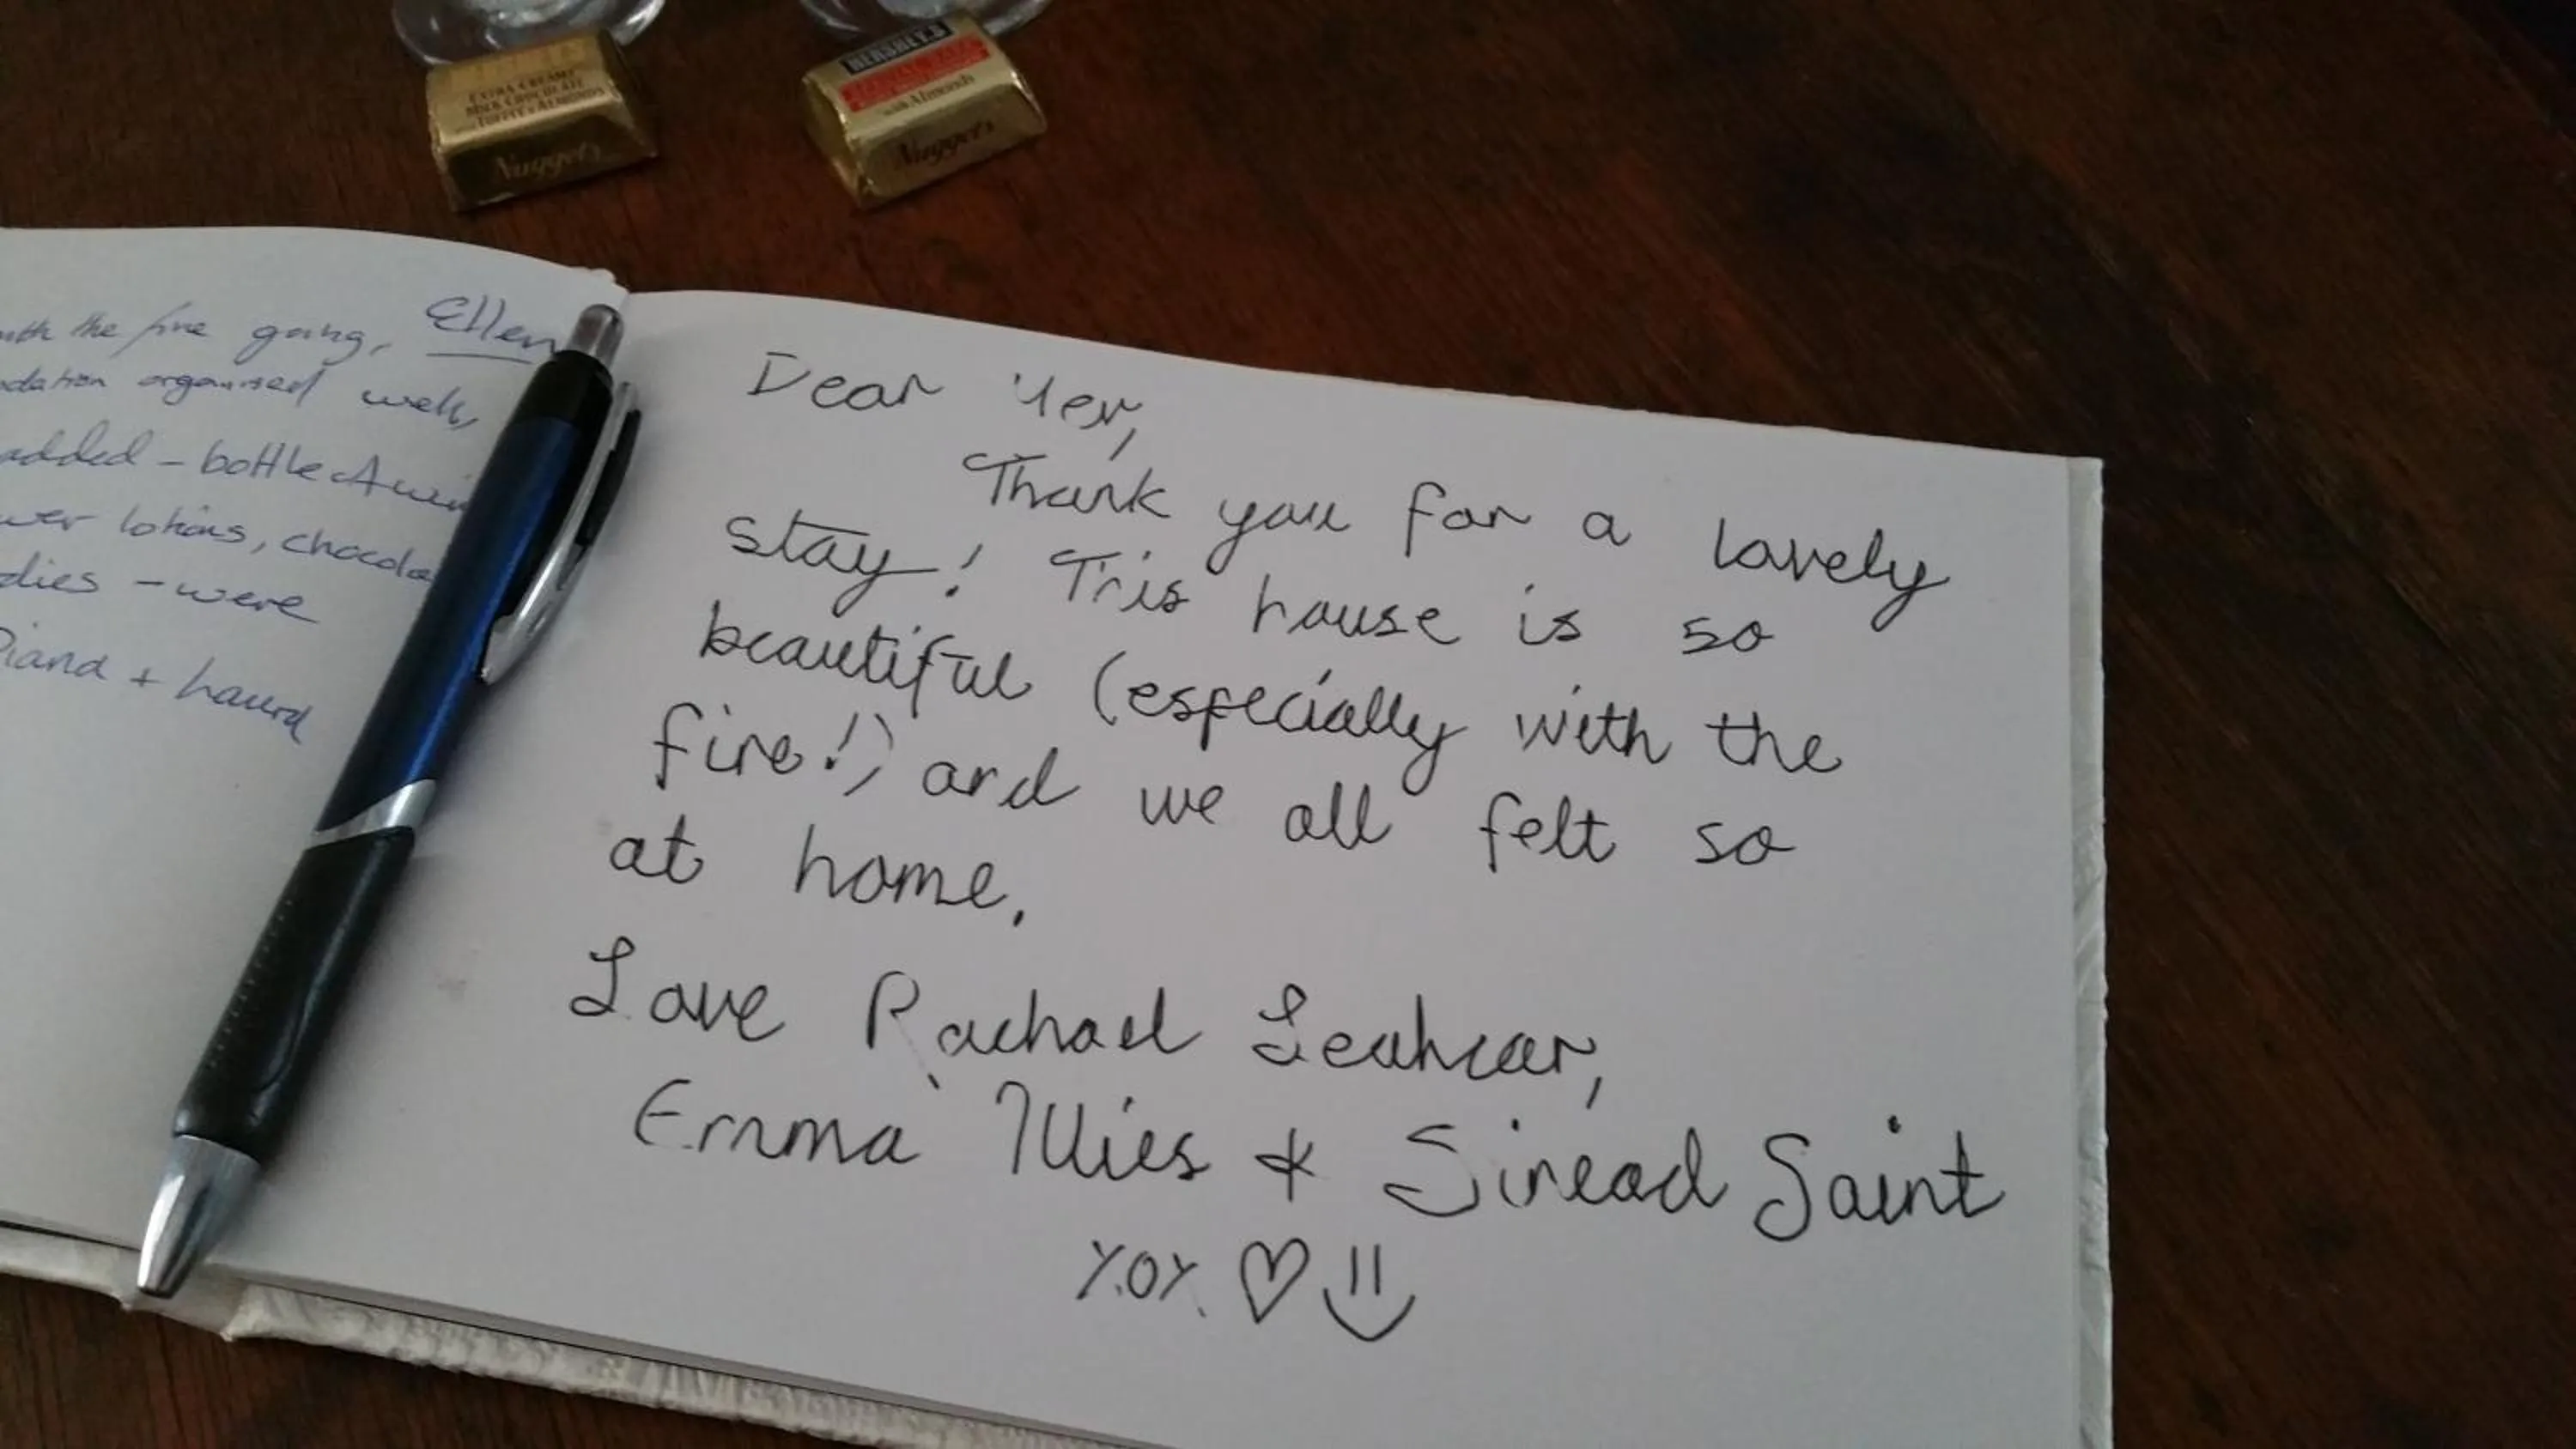 EXTRA CREAMY
MILK CHOCOLATE
TOFFEE & ALMONDS
Nuggets
HERSHEY'S
with Almonds
Nuggets
with the fire going, Ellen
organised well,
added - bottle of
lotions, chocola
dies - were
Diana +
Dear
Thank you for a lovely
stay! This house is so
beautiful (especially with the
fire!) and we all felt so
at home.
Love Rachael Leahcar,
Emma Illies & Sinead Saint
xox ♡ :)